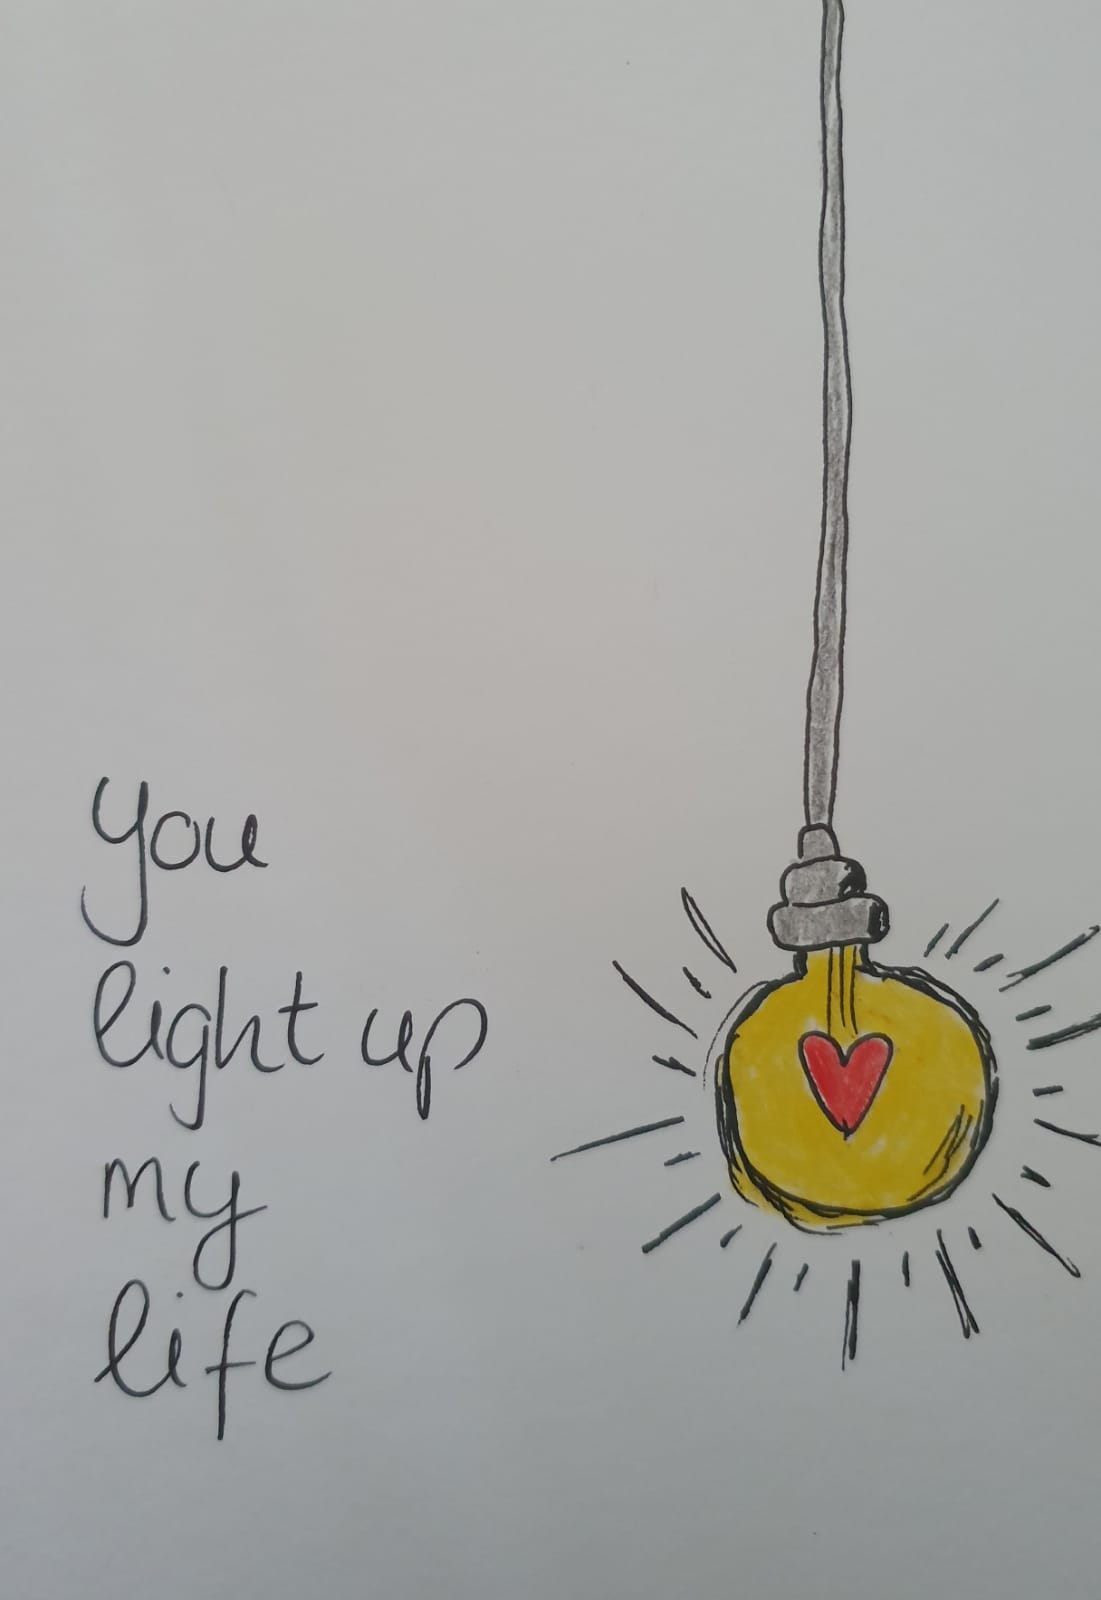 you
light up
my
life